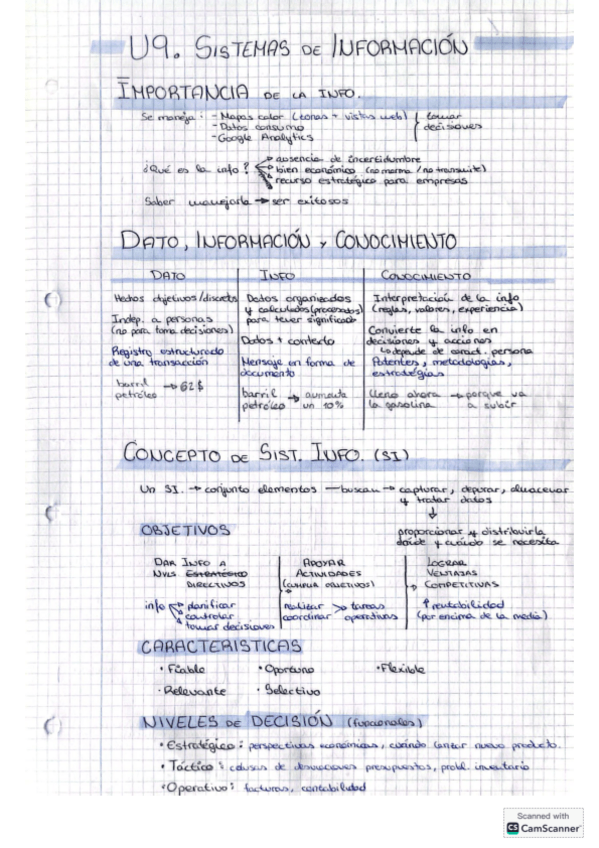 U9. SISTEMAS DE INFORMACIÓN
IMPORTANCIA DE LA INFO.
Se maneja: - Mapas calor (zonas + vistas web)
- Datos consumo
- Google Analytics
tomar
decisiones
¿Qué es la info?
ausencia de incertidumbre
bien económico (no merma / no transmite)
recurso estratégico para empresas
Saber manejarla → ser exitosos
DATO, INFORMACIÓN Y CONOCIMIENTO
DATO
Hechos objetivos/discretos
Indep. a personas
(no para toma decisiones)
Registro estructurado
de una transacción
barril
petróleo → 62$
INFO
Datos organizados
y calculados (procesados)
para tener significado
Datos + contexto
Mensaje en forma de
documento
barril → aumenta
petróleo un 10%
CONOCIMIENTO
Interpretación de la info
(reglas, valores, experiencia)
Convierte la info en
decisiones y acciones
↳ depende de caract. persona
Patentes, metodologías,
estrategias
lleno ahora → porque va
la gasolina a subir
CONCEPTO DE SIST. INFO. (SI)
Un SI. → conjunto elementos — buscan → capturar, depurar, almacenar
y tratar datos
↓
proporcionar y distribuirla
donde y cuando se necesita
OBJETIVOS
DAR INFO A
NVLS. ESTRATÉGICO
DIRECTIVOS
info
planificar
controlar
tomar decisiones
APOYAR
ACTIVIDADES
(CUMPLIR OBJETIVOS)
realizar > tareas
coordinar operativas
LOGRAR
VENTAJAS
COMPETITIVAS
↑ rentabilidad
(por encima de la media)
CARACTERISTICAS
• Fiable • Oportuno • Flexible
• Relevante • Selectivo
NIVELES DE DECISIÓN (funcionales)
• Estratégico: perspectivas económicas, cuándo lanzar nuevo producto.
• Táctico: causas de presupuestos, probl. inventario
• Operativo: facturas, contabilidad
Scanned with
CS CamScanner